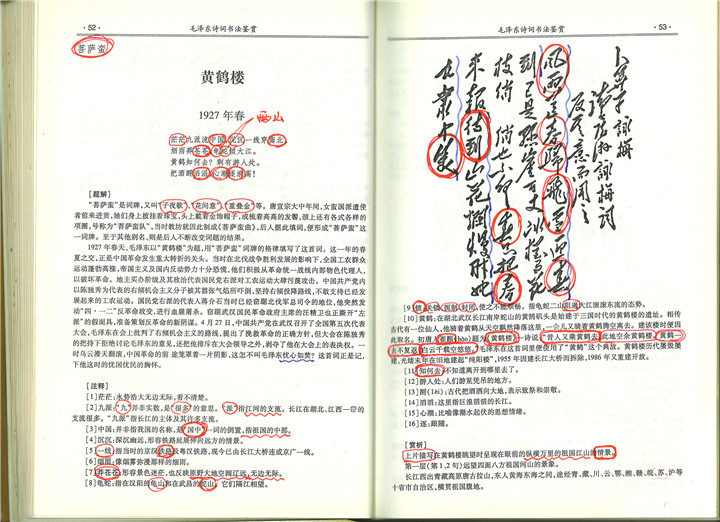 · 52 ·
毛泽东诗词书法鉴赏
菩萨蛮
黄鹤楼
1927 年春
茫茫九派流中国,沉沉一线穿南北。
烟雨莽苍苍,龟蛇锁大江。
黄鹤知何去?剩有游人处。
把酒酹滔滔,心潮逐浪高!
[题解]
“菩萨蛮”是词牌,又叫“子夜歌”、“花间意”、“重叠金”等。唐宣宗大中年间,女蛮国派遣使
者前来进贡,她们身上披挂着珠宝,头上戴着金饰帽子,或梳着高高的发髻,头上还有各式各样的
项圈,号称为“菩萨蛮队”,当时教坊就因此制成《菩萨蛮曲》,后人据此填词,便形成“菩萨蛮”这
一词牌。至于其他别名,则是后人不断改变词题的结果。
1927 年春天,毛泽东以“黄鹤楼”为题,用“菩萨蛮”词牌的格律填写了这首词。这一年的春
夏之交,正是中国革命发生重大转折的关头。当时在北伐战争胜利发展的影响下,全国工农群众
运动蓬勃高涨,帝国主义及国内反动势力十分恐慌,他们积极从革命统一战线内部物色代理人,
以破坏革命。地主买办阶级及其政治代表国民党右派对工农运动大肆污蔑攻击。中国共产党
内以陈独秀为代表的右倾机会主义分子被其嚣张气焰所吓倒,坚持右倾投降路线,不敢支持已经发
展起来的工农运动。国民党右派的代表人蒋介石当时已经窃踞北伐军总司令的地位,他突然发
动“四·一二”反革命政变,进行血腥屠杀。窃踞武汉国民革命政府主席的汪精卫也正撕开“左
派”的假面具,准备策划反革命的新阴谋。4 月 27 日,中国共产党在武汉召开了全国第五次代表
大会,毛泽东在会上批判了右倾机会主义的路线,提出了挽救革命的正确方针,但大会在陈独秀
的把持下拒绝讨论毛泽东的意见,还把他排斥在大会领导之外,剥夺了他在大会上的表决权。一
时乌云漫天翻滚,中国革命的前途笼罩着一片阴影,这怎不叫毛泽东忧心如焚?这首词正是记
下他这时的忧国忧民的胸怀。
[注释]
[1]茫茫:水势浩大无边无际,看不清楚。
[2]九派:“九”并非实数,是“很多”的意思。“派”指江河的支流。长江在湖北、江西一带的
支流很多。“九派”指长江的主体及其许多支流。
[3]中国:并非指我国的名称,是“国中”一词的倒置,指祖国的中部。
[4]沉沉:深沉幽远,形容铁路延展伸向远方的情景。
[5]一线:指当时的京汉铁路及粤汉铁路,现今已由长江大桥连成京广一线。
[6]烟雨:像烟雾弥漫那样的细雨。
[7]莽苍苍:形容景色迷茫,也反映原野大地空阔辽远,无边无际。
[8]龟蛇:指在汉阳的龟山和在武昌的蛇山,它们隔江相望。
毛泽东诗词书法鉴赏
· 53 ·
卜算子 咏梅
读陆游咏梅词
反其意而用之
风雨送春归 飞雪迎春
到 已是悬崖百丈冰 犹有花
枝俏 俏也不争春 只把春
来报 待到山花烂熳时 她
在丛中笑
[9]锁:关锁,扼制,封闭,使之不能驰畅。指龟蛇二山扼堵大江滚滚东流的态势。
[10]黄鹤:在湖北武汉长江南岸蛇山的黄鹄矶头是始建于三国时代的黄鹤楼的遗址。相传
古代有一位仙人,他骑着黄鹤从天空飘然降落这里,一会儿又骑着黄鹤腾空离去。建该楼时便因
此取名。初唐人崔颢(hào)题为《黄鹤楼》一诗说:“昔人又乘黄鹤去,此地空余黄鹤楼,黄鹤一
去不复返,白云千载空悠悠。”毛泽东在这首词里便使用了“黄鹤”这个典故。黄鹤楼历代屡毁屡
建,光绪末年在旧地建起“纯阳楼”,1955 年因建长江大桥而拆除,1986 年又重建开放。
[11]知何去:不知道离开到哪里去了。
[12]游人处:人们游览凭吊的地方。
[13]酹(lèi):古代把酒洒向大地,表示致祭和崇敬。
[14]滔滔:这里指巨浪滔滔的长江。
[15]心潮:比喻像潮水起伏的思想情绪。
[16]逐:跟随。
[赏析]
上片描写在黄鹤楼眺望时呈现在眼前的纵横万里的祖国江山的情景。
第一层(第 1、2 句)远望四面八方祖国河山的景象。
长江西出青藏高原唐古拉山,东入黄海东海之间,途经青、藏、川、云、鄂、湘、赣、皖、苏、沪等
十省市自治区,横贯祖国腹地。